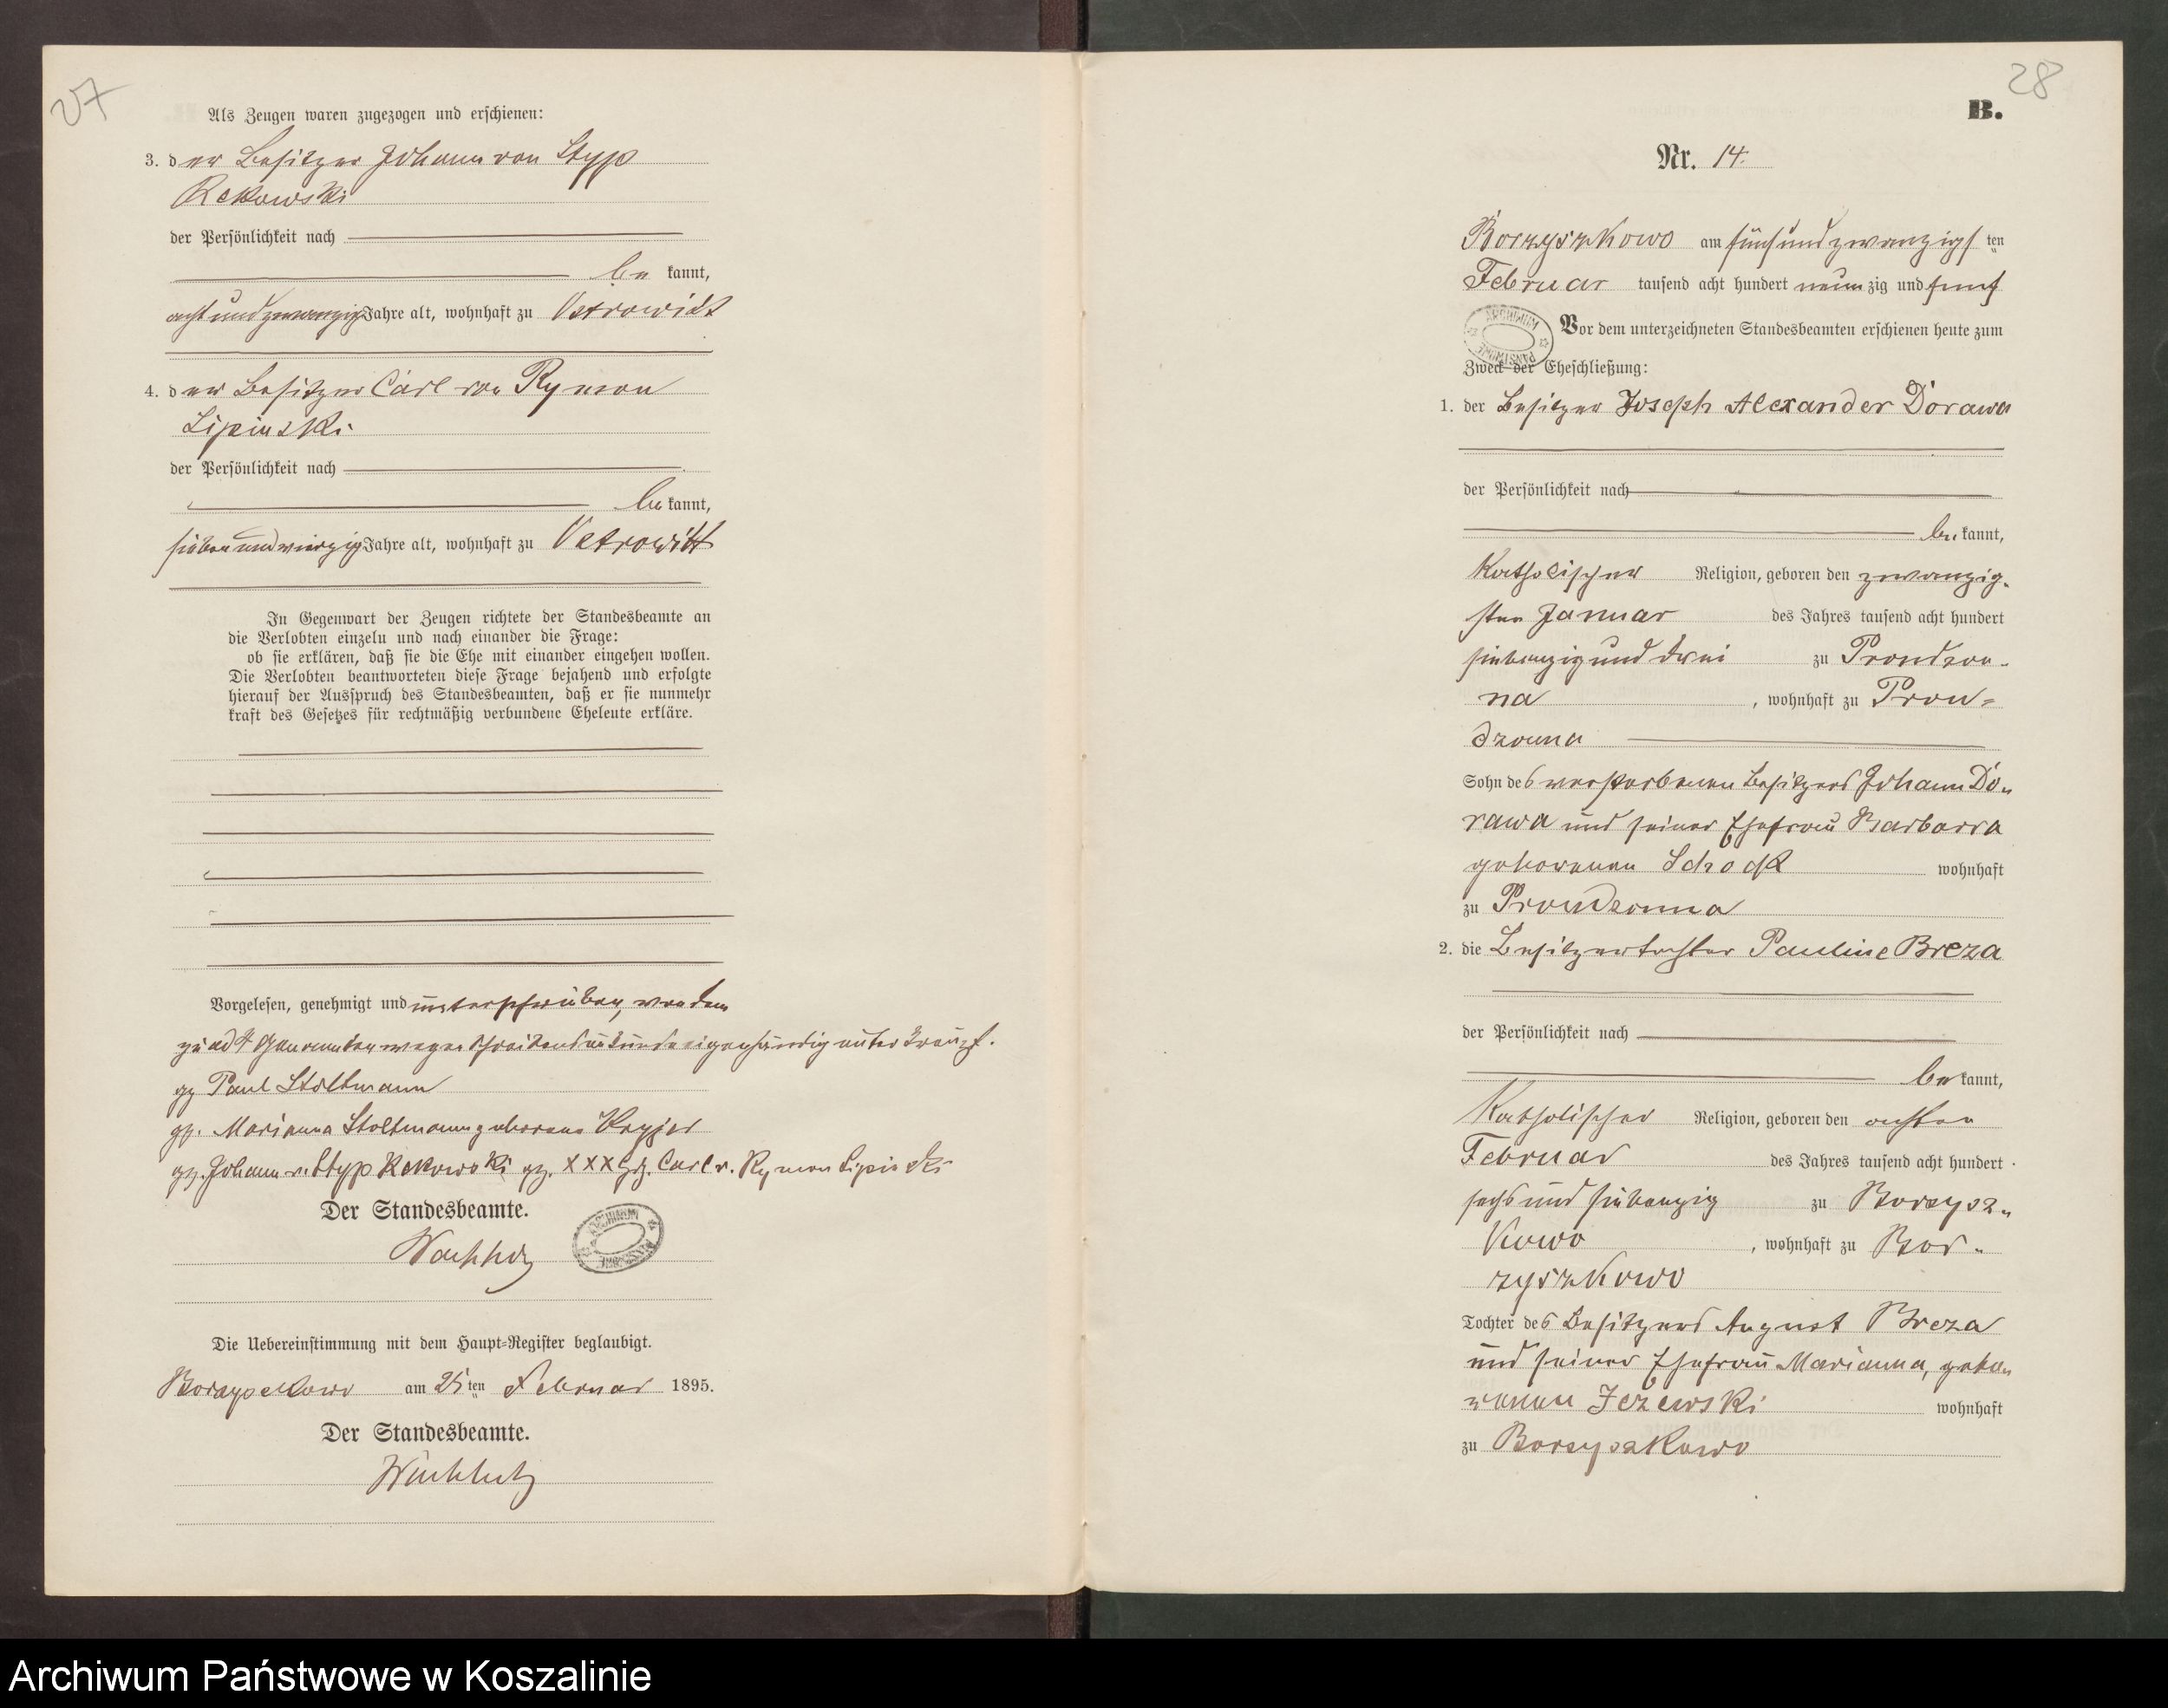 27
Als Zeugen waren zugezogen und erschienen:
3. der Besitzer Johann von Styp
Rekowski
der Persönlichkeit nach
be kannt,
achtundzwanzig Jahre alt, wohnhaft zu Ostrowitt
4. der Besitzer Carl von Rymon
Lipinski
der Persönlichkeit nach
be kannt,
siebenundvierzig Jahre alt, wohnhaft zu Ostrowitt
In Gegenwart der Zeugen richtete der Standesbeamte an
die Verlobten einzeln und nach einander die Frage:
ob sie erklären, daß sie die Ehe mit einander eingehen wollen.
Die Verlobten beantworteten diese Frage bejahend und erfolgte
hierauf der Ausspruch des Standesbeamten, daß er sie nunmehr
kraft des Gesetzes für rechtmäßig verbundene Eheleute erkläre.
Vorgelesen, genehmigt und unterschrieben, von dem
zu ad 4 Genannten wegen Schreibensunkunde eigenhändig unterkreuzt.
gz Paul Stoltmann
gz. Marianna Stoltmann geborene
gz. Johann v. Styp Rekowski gz. XXX Carl v. Rymon Lipinski
Der Standesbeamte.
Die Uebereinstimmung mit dem Haupt-Register beglaubigt.
Borzyszkowo am 25 ten Februar 1895.
Der Standesbeamte.
28
B.
Nr. 14.
Borzyszkowo am fünfundzwanzigs ten
Februar tausend acht hundert neun zig und fünf
ARCHIWUM PAŃSTWOWE
Vor dem unterzeichneten Standesbeamten erschienen heute zum
Zweck der Eheschließung:
1. der Besitzer Joseph Alexander Dorawa
der Persönlichkeit nach
be kannt,
katholischer Religion, geboren den zwanzig-
sten Januar des Jahres tausend acht hundert
siebenzig und drei zu Prondzon-
na, wohnhaft zu Pron-
dzonna
Sohn des verstorbenen Besitzers Johann Do-
rawa und seiner Ehefrau Barbarra
geborenen wohnhaft
zu Prondzonna
2. die Besitzertochter Pauline Breza
der Persönlichkeit nach
be kannt,
katholischer Religion, geboren den achten
Februar des Jahres tausend acht hundert
sechs und siebenzig zu Borzysz-
kowo, wohnhaft zu Bor-
zyszkowo
Tochter des Besitzers August Breza
und seiner Ehefrau Marianna, gebo-
renen Jezewski wohnhaft
zu Borzyszkowo
Archiwum Państwowe w Koszalinie